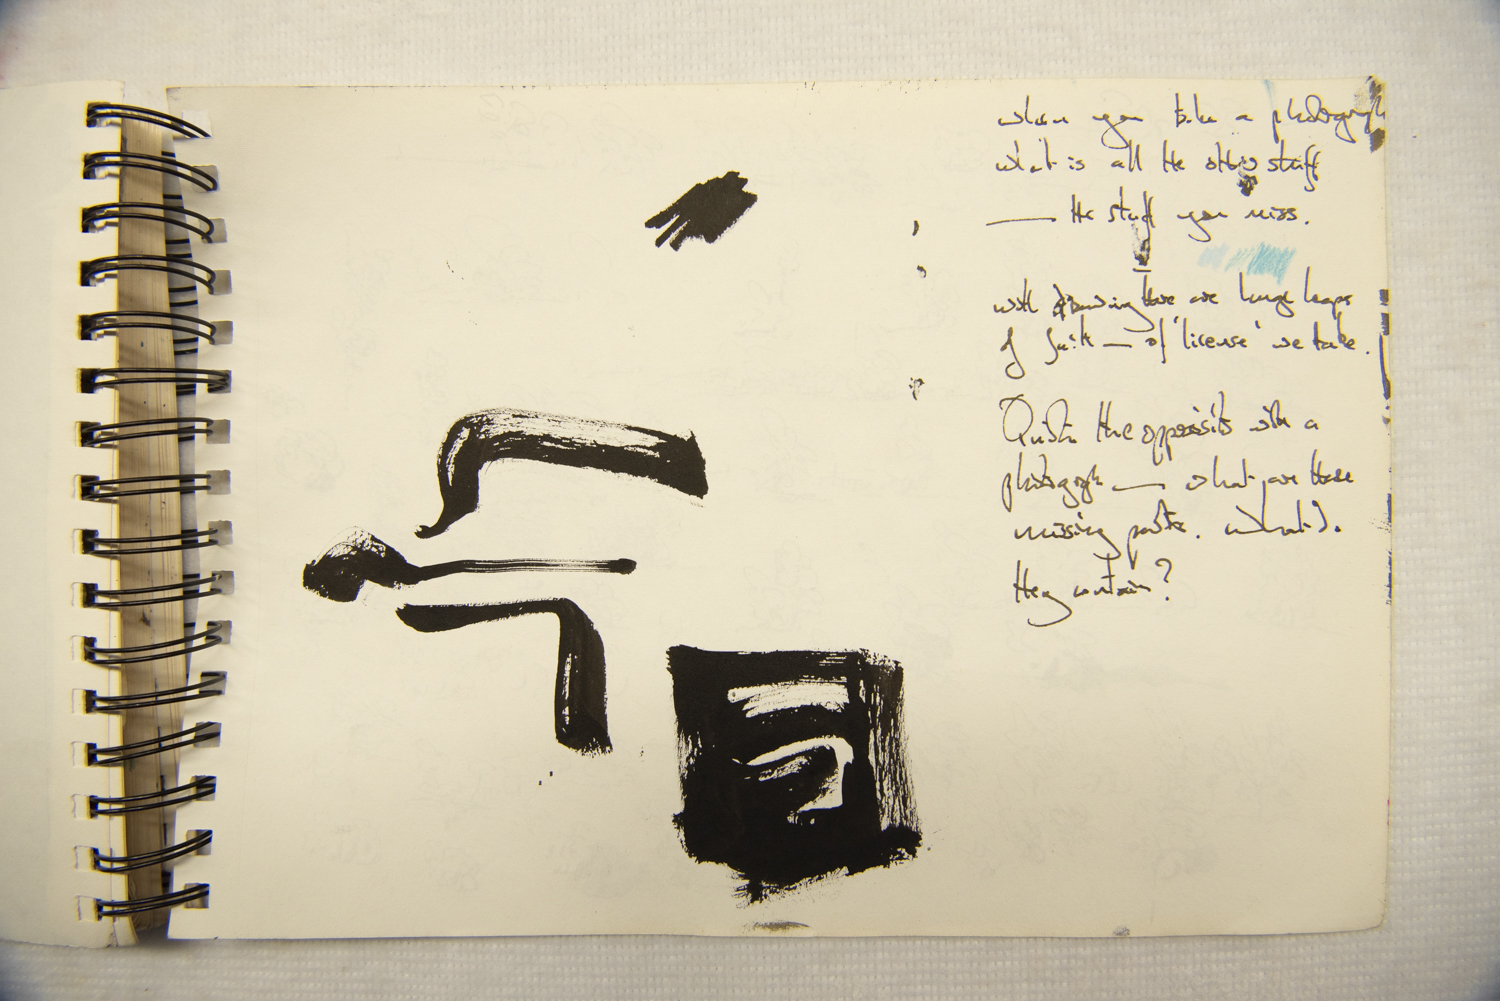 when you take a photograph
what is all the other stuff
— the stuff you miss.
with drawing there are huge leaps
of faith — of 'license' we take.
Quite the opposite with a
photograph — what are these
missing parts. What do
they contain?